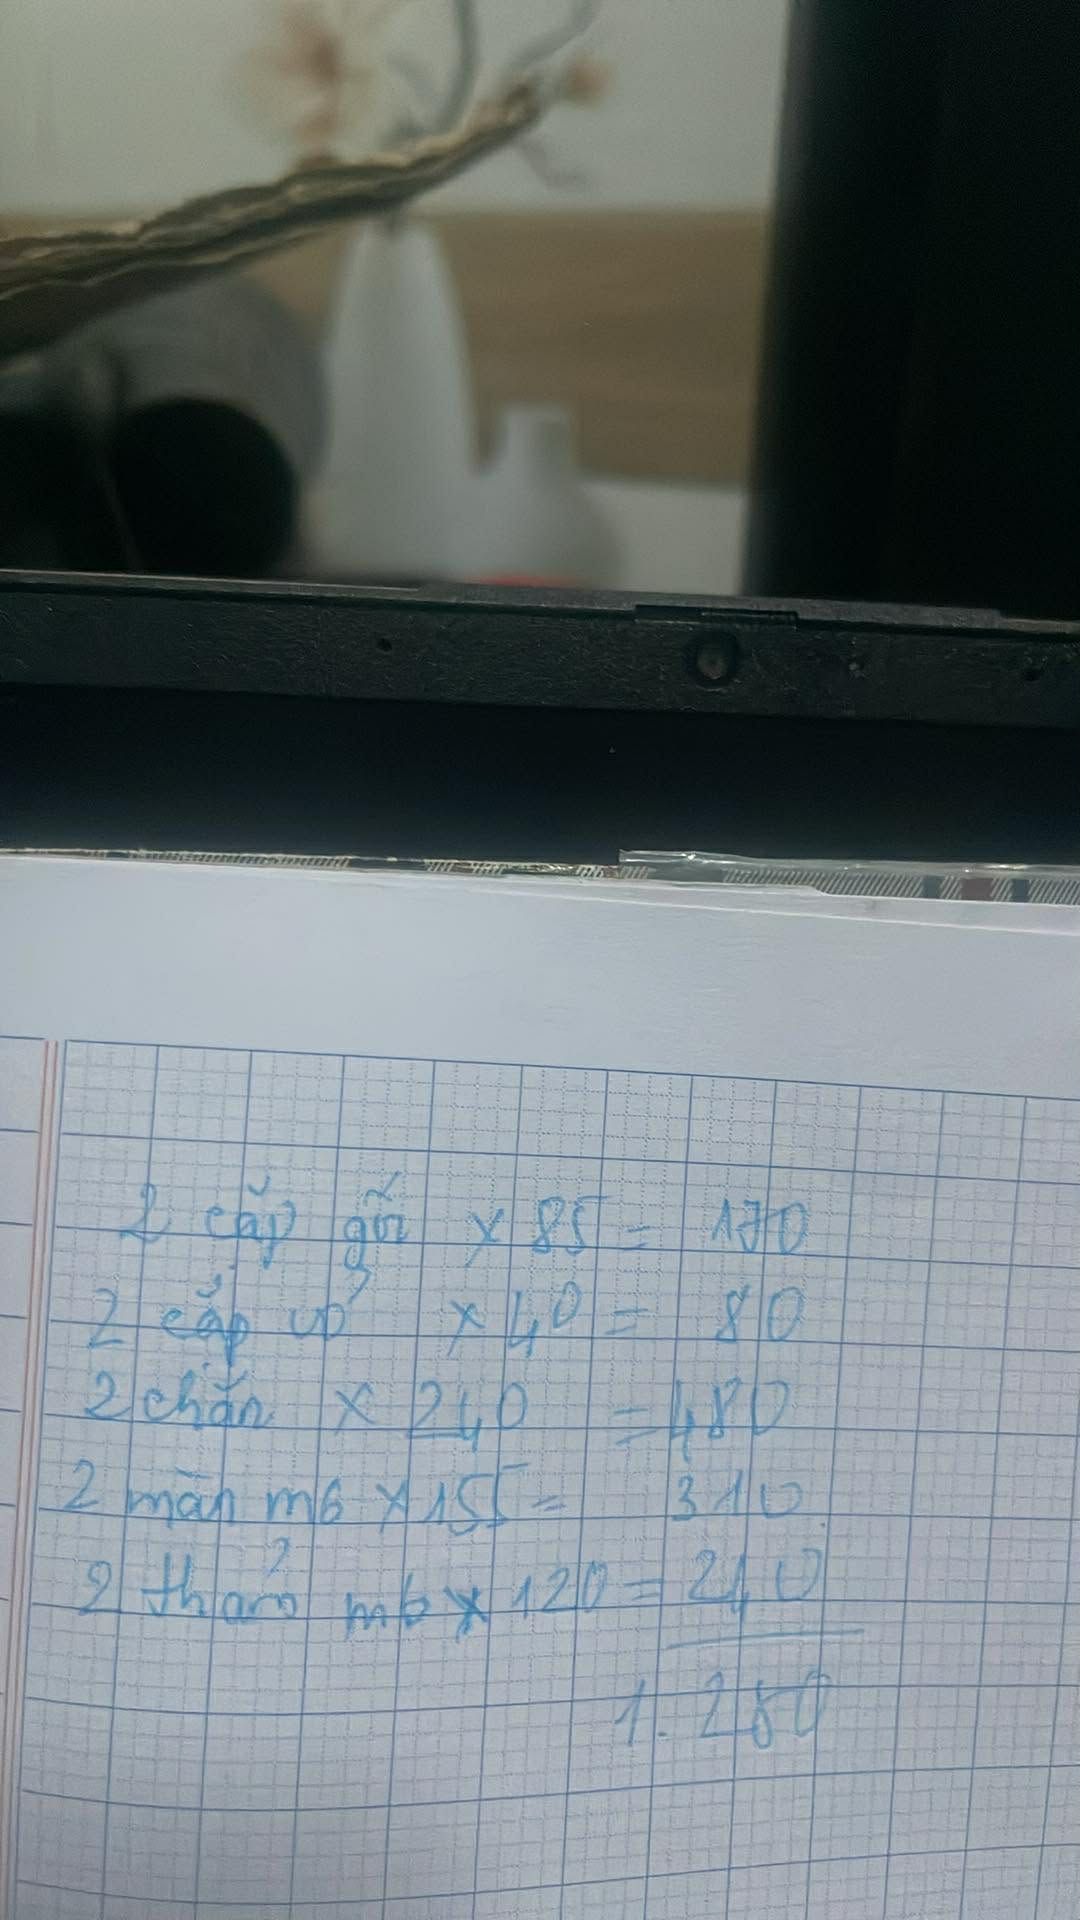 2 cặp gối x 85 = 170
2 cặp vỏ x 40 = 80
2 chăn x 240 = 480
2 màn m6 x 155 = 310
2 thảm m6 x 120 = 240
1.280